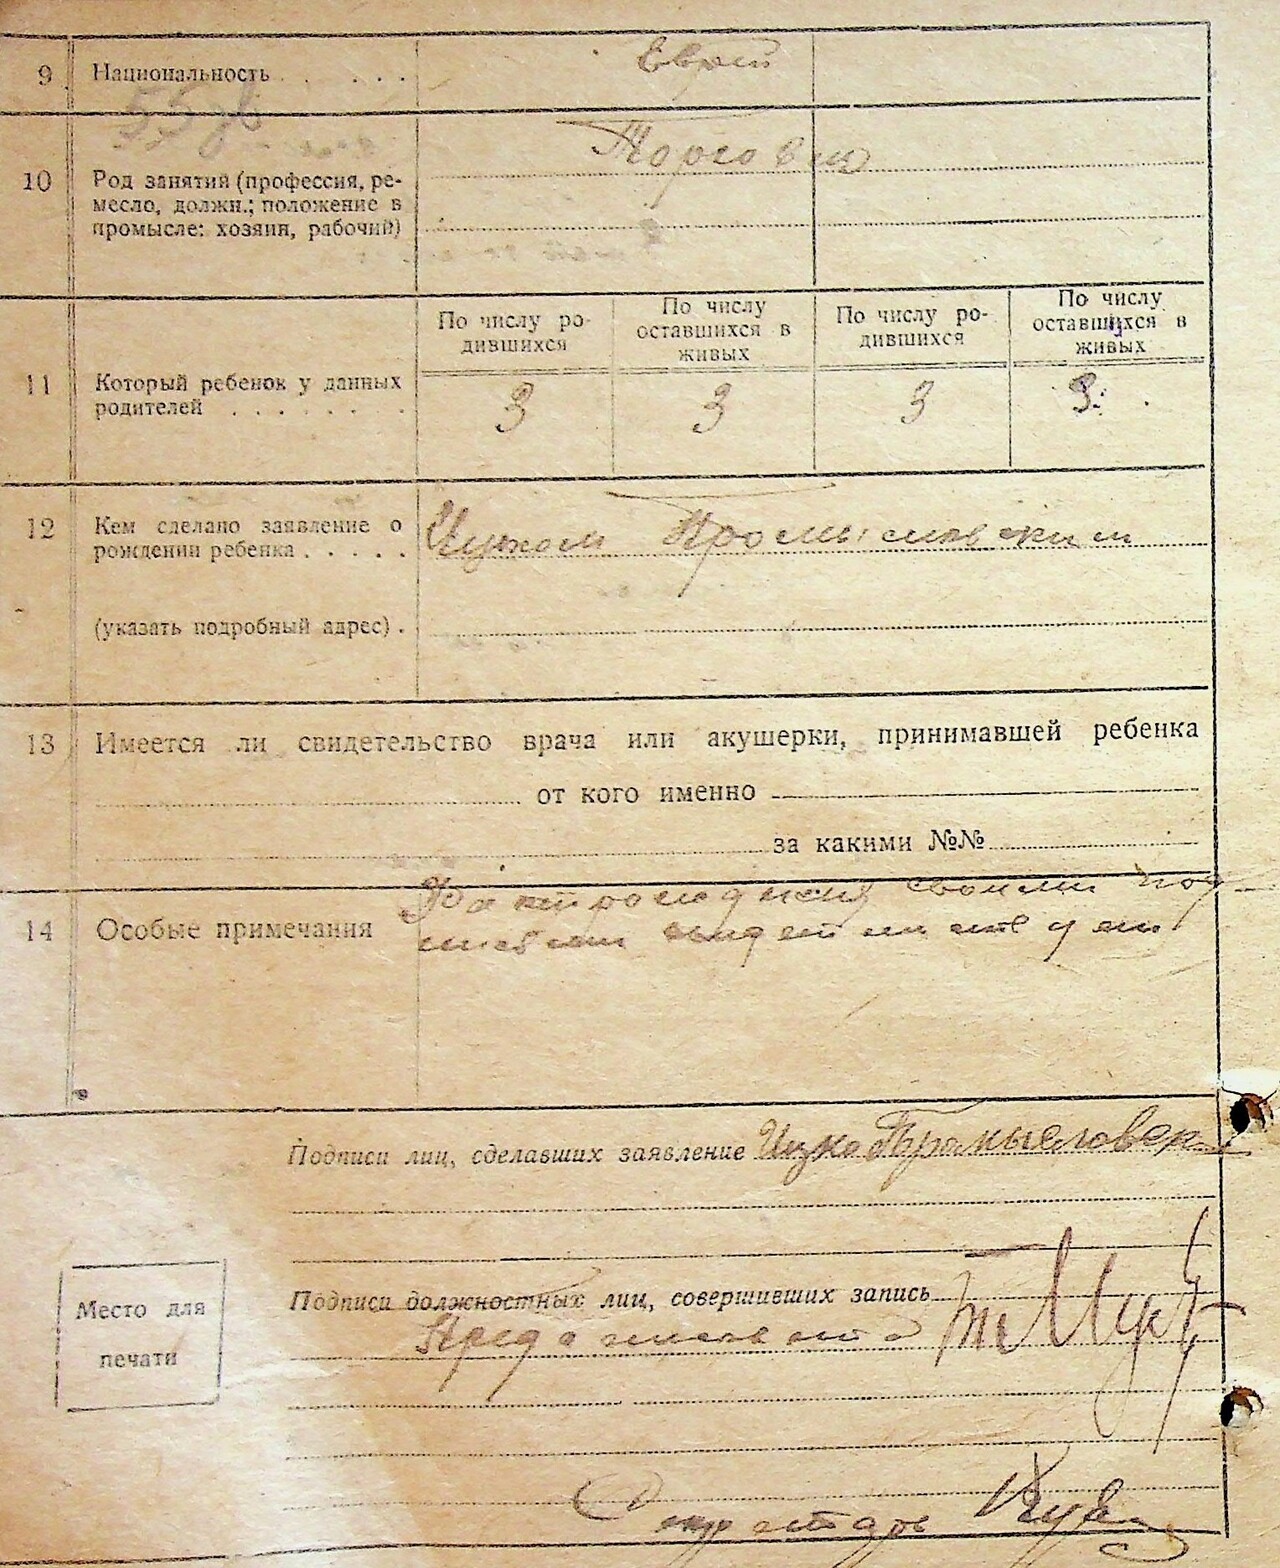 9 Национальность . . . . . Еврей
558
Торговец
10 Род занятий (профессия, ре-
месло, должн.; положение в
промысле: хозяин, рабочий)
По числу ро-
дившихся
По числу
оставшихся в
живых
По числу ро-
дившихся
По числу
оставшихся в
живых
11 Который ребенок у данных
родителей . . . . . . . .
3 3 3 3
12 Кем сделано заявление о
рождении ребенка . . . . .
(указать подробный адрес) .
13 Имеется ли свидетельство врача или акушерки, принимавшей ребенка
от кого именно
за какими №№
14 Особые примечания
Факт рождения своими под-
Подписи лиц, сделавших заявление Ицко Промысловск
Подписи должностных лиц, совершивших запись
Место для
печати